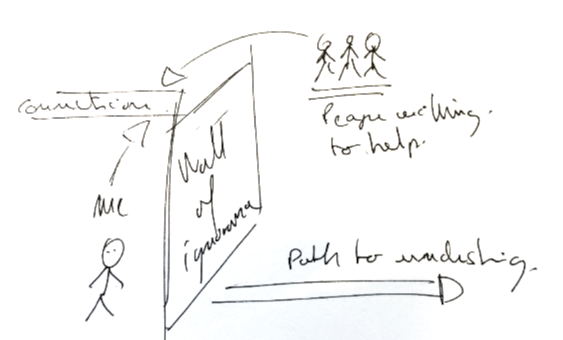 connection
People willing
to help.
me
Wall
of
ignorance
Path to understanding.